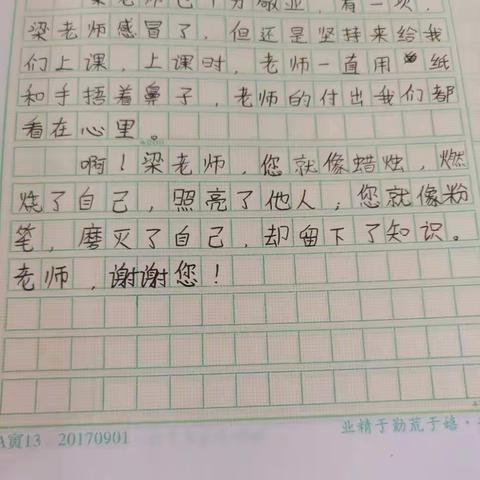 梁老师也十分敬业，有一次，
梁老师感冒了，但还是坚持来给我
们上课，上课时，老师一直用纸
和手捂着鼻子，老师的付出我们都
看在心里。
啊！梁老师，您就像蜡烛，燃
烧了自己，照亮了他人；您就像粉
笔，磨灭了自己，却留下了知识。
老师，谢谢您！
20170901
业精于勤荒于嬉